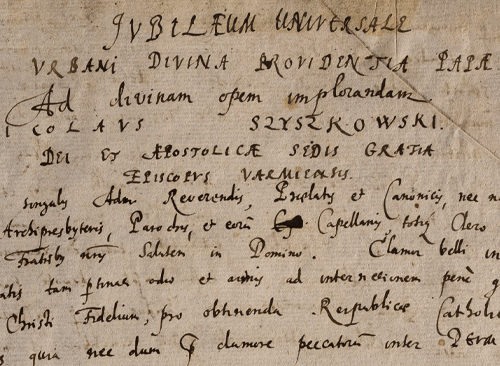 JVBILÆUM UNIVERSALE
VRBANI DIVINA PROVIDENTIA PAPÆ
Ad divinam opem implorandam.
ICOLAVS SZYSZKOWSKI.
DEI ET APOSTOLICÆ SEDIS GRATIA
EPISCOPVS VARMIENSIS.
singulis Adm Reverendis, Prælatis et Canonicis, nec n
Archipresbyteris, Parochis, et eorū Capellanis, totiq Clero
Fratribq nris Salutem in Domino. Clamor belli in
atis tam odio et armis ad internecionem penè q
Christi Fidelium, pro obtinenda Reipublicæ Catholi
s quia nec dum clamore peccatorū inter